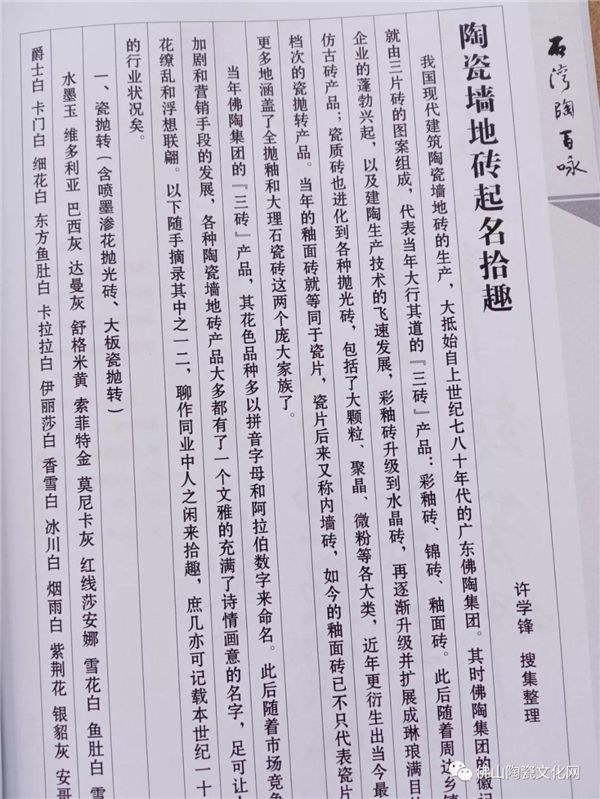 石湾陶百咏
陶瓷墙地砖起名拾趣
许学锋 搜集整理
我国现代建筑陶瓷墙地砖的生产，大抵始自上世纪七八十年代的广东佛陶集团。其时佛陶集团的徽记
就由三片砖的图案组成，代表当年大行其道的『三砖』产品：彩釉砖、锦砖、釉面砖。此后随着周边乡镇
企业的蓬勃兴起，以及建陶生产技术的飞速发展，彩釉砖升级到水晶砖，再逐渐升级并扩展成琳琅满目的
仿古砖产品；瓷质砖也进化到各种抛光砖，包括了大颗粒、聚晶、微粉等各大类，近年更衍生出当今最
档次的瓷抛转产品。当年的釉面砖就等同于瓷片，瓷片后来又称内墙砖，如今的釉面砖已不只代表瓷片
更多地涵盖了全抛釉和大理石瓷砖这两个庞大家族了。
当年佛陶集团的『三砖』产品，其花色品种多以拼音字母和阿拉伯数字来命名。此后随着市场竞争
加剧和营销手段的发展，各种陶瓷墙地砖产品大多都有了一个文雅的充满了诗情画意的名字，足可让
花缭乱和浮想联翩。以下随手摘录其中之一二，聊作同业中人之闲来拾趣，庶几亦可记载本世纪一十
的行业状况矣。
一、瓷抛转（含喷墨渗花抛光砖、大板瓷抛转）
水墨玉 维多利亚 巴西灰 达曼灰 舒格米黄 索菲特金 莫尼卡灰 红线莎安娜 雪花白 鱼肚白 雪
爵士白 卡门白 细花白 东方鱼肚白 卡拉拉白 伊丽莎白 香雪白 冰川白 烟雨白 紫荆花 银貂灰 安哥
佛山陶瓷文化网